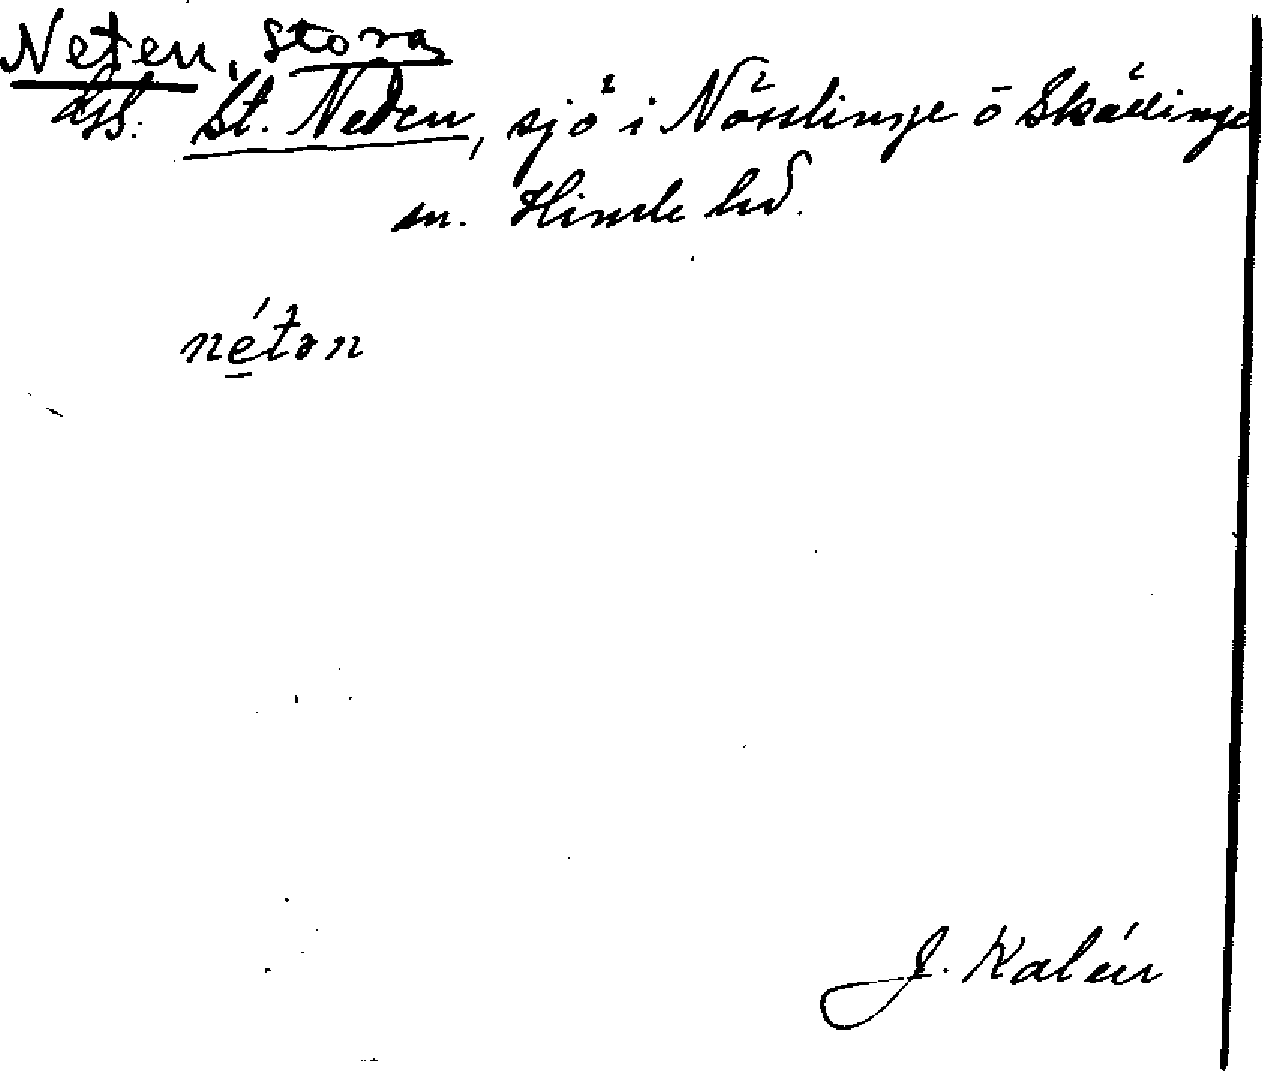 Neten, Stora
St. Neden, sjö i Nösslinge o Skällinge
sn. Himle hd.
néton
J. Kalén